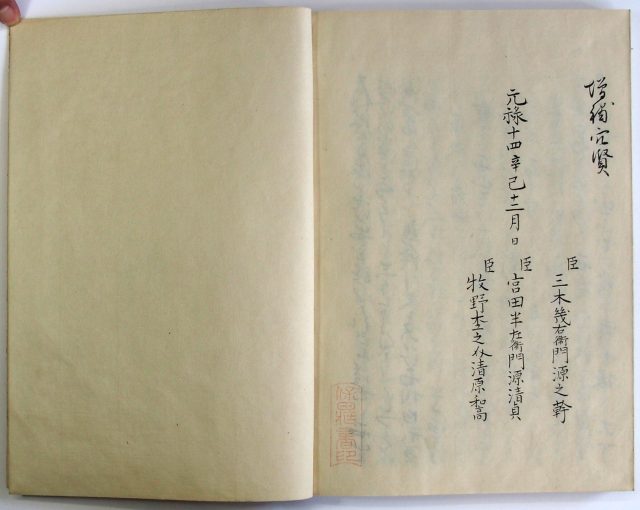 増補
元祿十四辛巳十二月日
臣 三木幾右衛門源之幹
臣 宮田半左衛門源清貞
臣 牧野杢之介清原和高